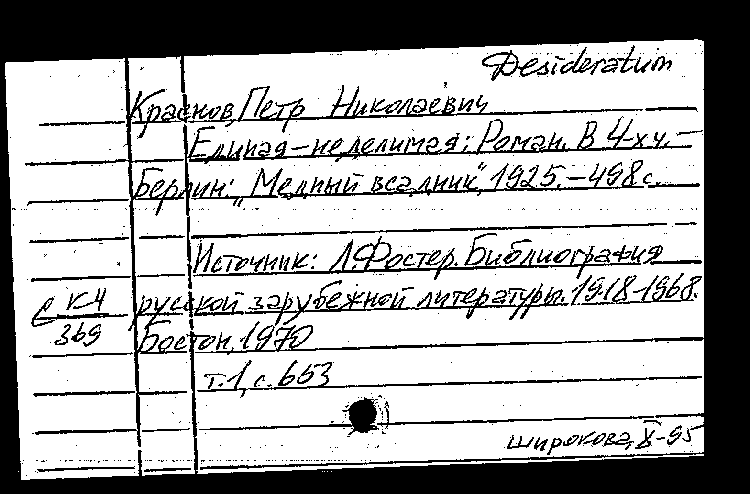 Desideratum
Краснов, Петр Николаевич
Единая-неделимая: Роман. В 4-х ч. –
Берлин: „Медный всадник", 1925. – 498 с.
Источник: Л. Фостер. Библиография
русской зарубежной литературы. 1918-1968.
Бостон, 1970
т. 1, с. 653
с К4
369
Широкова, X-95